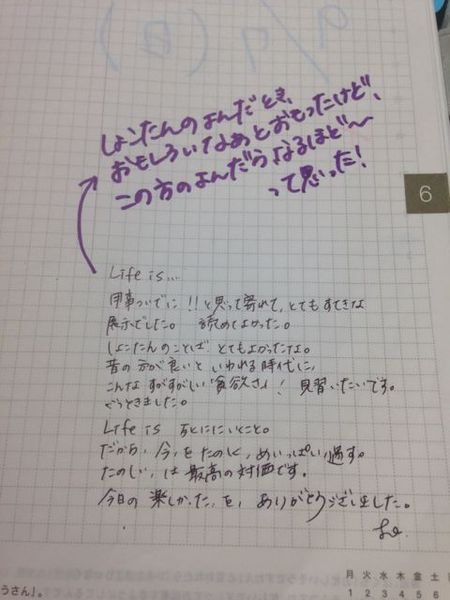 9/7(日)
しょこたんのよんだとき、
おもしろいなあとおもったけど、
この方のよんだらなるほど〜
って思った!
6
Life is....
用事ついでに!!と思って寄れて、とてもすてきな
展示でした。読めてよかった。
しょこたんのことば とてもよかったな。
昔の方が良いと いわれる時代に、
こんな すがすがしい「貪欲さ」! 見習いたいです。
ぐっときました。
Life is 死ににいくこと。
だから、今、をたのしく、めいっぱい過す。
たのしい、は 最高の対価です。
今日の楽しかった、を、ありがとうございました。
月 火 水 木 金 土
1 2 3 4 5 6
うさん」。